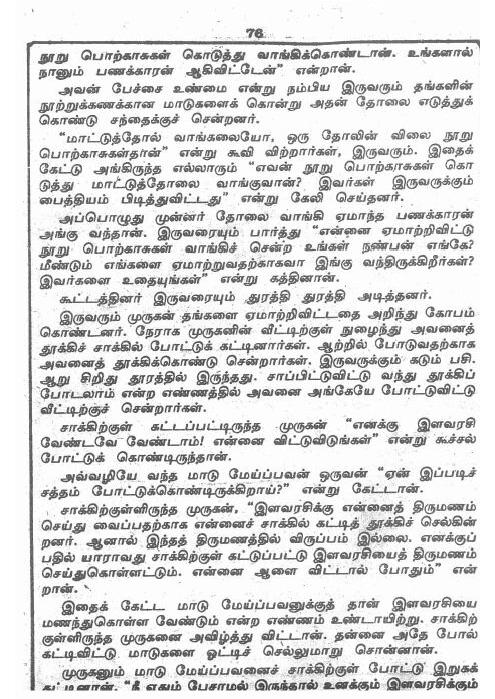 76
நூறு பொற்காசுகள் கொடுத்து வாங்கிக்கொண்டான். உங்களால்
நானும் பணக்காரன் ஆகிவிட்டேன்" என்றான்.
அவன் பேச்சை உண்மை என்று நம்பிய இருவரும் தங்களின்
நூற்றுக்கணக்கான மாடுகளைக் கொன்று அதன் தோலை எடுத்துக்
கொண்டு சந்தைக்குச் சென்றனர்.
"மாட்டுத்தோல் வாங்கலையோ, ஒரு தோலின் விலை நூறு
பொற்காசுகள்தான்" என்று கூவி விற்றார்கள், இருவரும். இதைக்
கேட்டு அங்கிருந்த எல்லாரும் "எவன் நூறு பொற்காசுகள் கொ
டுத்து மாட்டுத்தோலை வாங்குவான்? இவர்கள் இருவருக்கும்
பைத்தியம் பிடித்துவிட்டது" என்று கேலி செய்தனர்.
அப்பொழுது முன்னர் தோலை வாங்கி ஏமாந்த பணக்காரன்
அங்கு வந்தான். இருவரையும் பார்த்து "என்னை ஏமாற்றிவிட்டு
நூறு பொற்காசுகள் வாங்கிச் சென்ற உங்கள் நண்பன் எங்கே?
மீண்டும் எங்களை ஏமாற்றுவதற்காகவா இங்கு வந்திருக்கிறீர்கள்?
இவர்களை உதையுங்கள்" என்று கத்தினான்.
கூட்டத்தினர் இருவரையும் துரத்தி துரத்தி அடித்தனர்.
இருவரும் முருகன் தங்களை ஏமாற்றிவிட்டதை அறிந்து கோபம்
கொண்டனர். நேராக முருகனின் வீட்டிற்குள் நுழைந்து அவனைத்
தூக்கிச் சாக்கில் போட்டுக் கட்டினார்கள். ஆற்றில் போடுவதற்காக
அவனைத் தூக்கிக்கொண்டு சென்றார்கள். இருவருக்கும் கடும் பசி.
ஆறு சிறிது தூரத்தில் இருந்தது. சாப்பிட்டுவிட்டு வந்து தூக்கிப்
போடலாம் என்ற எண்ணத்தில் அவனை அங்கேயே போட்டுவிட்டு
வீட்டிற்குச் சென்றார்கள்.
சாக்கிற்குள் கட்டப்பட்டிருந்த முருகன் "எனக்கு இளவரசி
வேண்டவே வேண்டாம்! என்னை விட்டுவிடுங்கள்" என்று கூச்சல்
போட்டுக் கொண்டிருந்தான்.
அவ்வழியே வந்த மாடு மேய்ப்பவன் ஒருவன் "ஏன் இப்படிச்
சத்தம் போட்டுக்கொண்டிருக்கிறாய்?" என்று கேட்டான்.
சாக்கிற்குள்ளிருந்த முருகன், "இளவரசிக்கு என்னைத் திருமணம்
செய்து வைப்பதற்காக என்னைச் சாக்கில் கட்டித் தூக்கிச் செல்கின்
றனர். ஆனால் இந்தத் திருமணத்தில் விருப்பம் இல்லை. எனக்குப்
பதில் யாராவது சாக்கிற்குள் கட்டுப்பட்டு இளவரசியைத் திருமணம்
செய்துகொள்ளட்டும். என்னை ஆளை விட்டால் போதும்" என்
றான்.
இதைக் கேட்ட மாடு மேய்ப்பவனுக்குத் தான் இளவரசியை
மணந்துகொள்ள வேண்டும் என்ற எண்ணம் உண்டாயிற்று. சாக்கிற்
குள்ளிருந்த முருகனை அவிழ்த்து விட்டான். தன்னை அதே போல்
கட்டிவிட்டு மாடுகளை ஓட்டிச் செல்லுமாறு சொன்னான்.
முருகனும் மாடு மேய்ப்பவனைச் சாக்கிற்குள் போட்டு இறுகக்
கட்டினான். "நீ எதும் பேசாமல் இருந்தால் உனக்கும் இளவரசிக்கும்